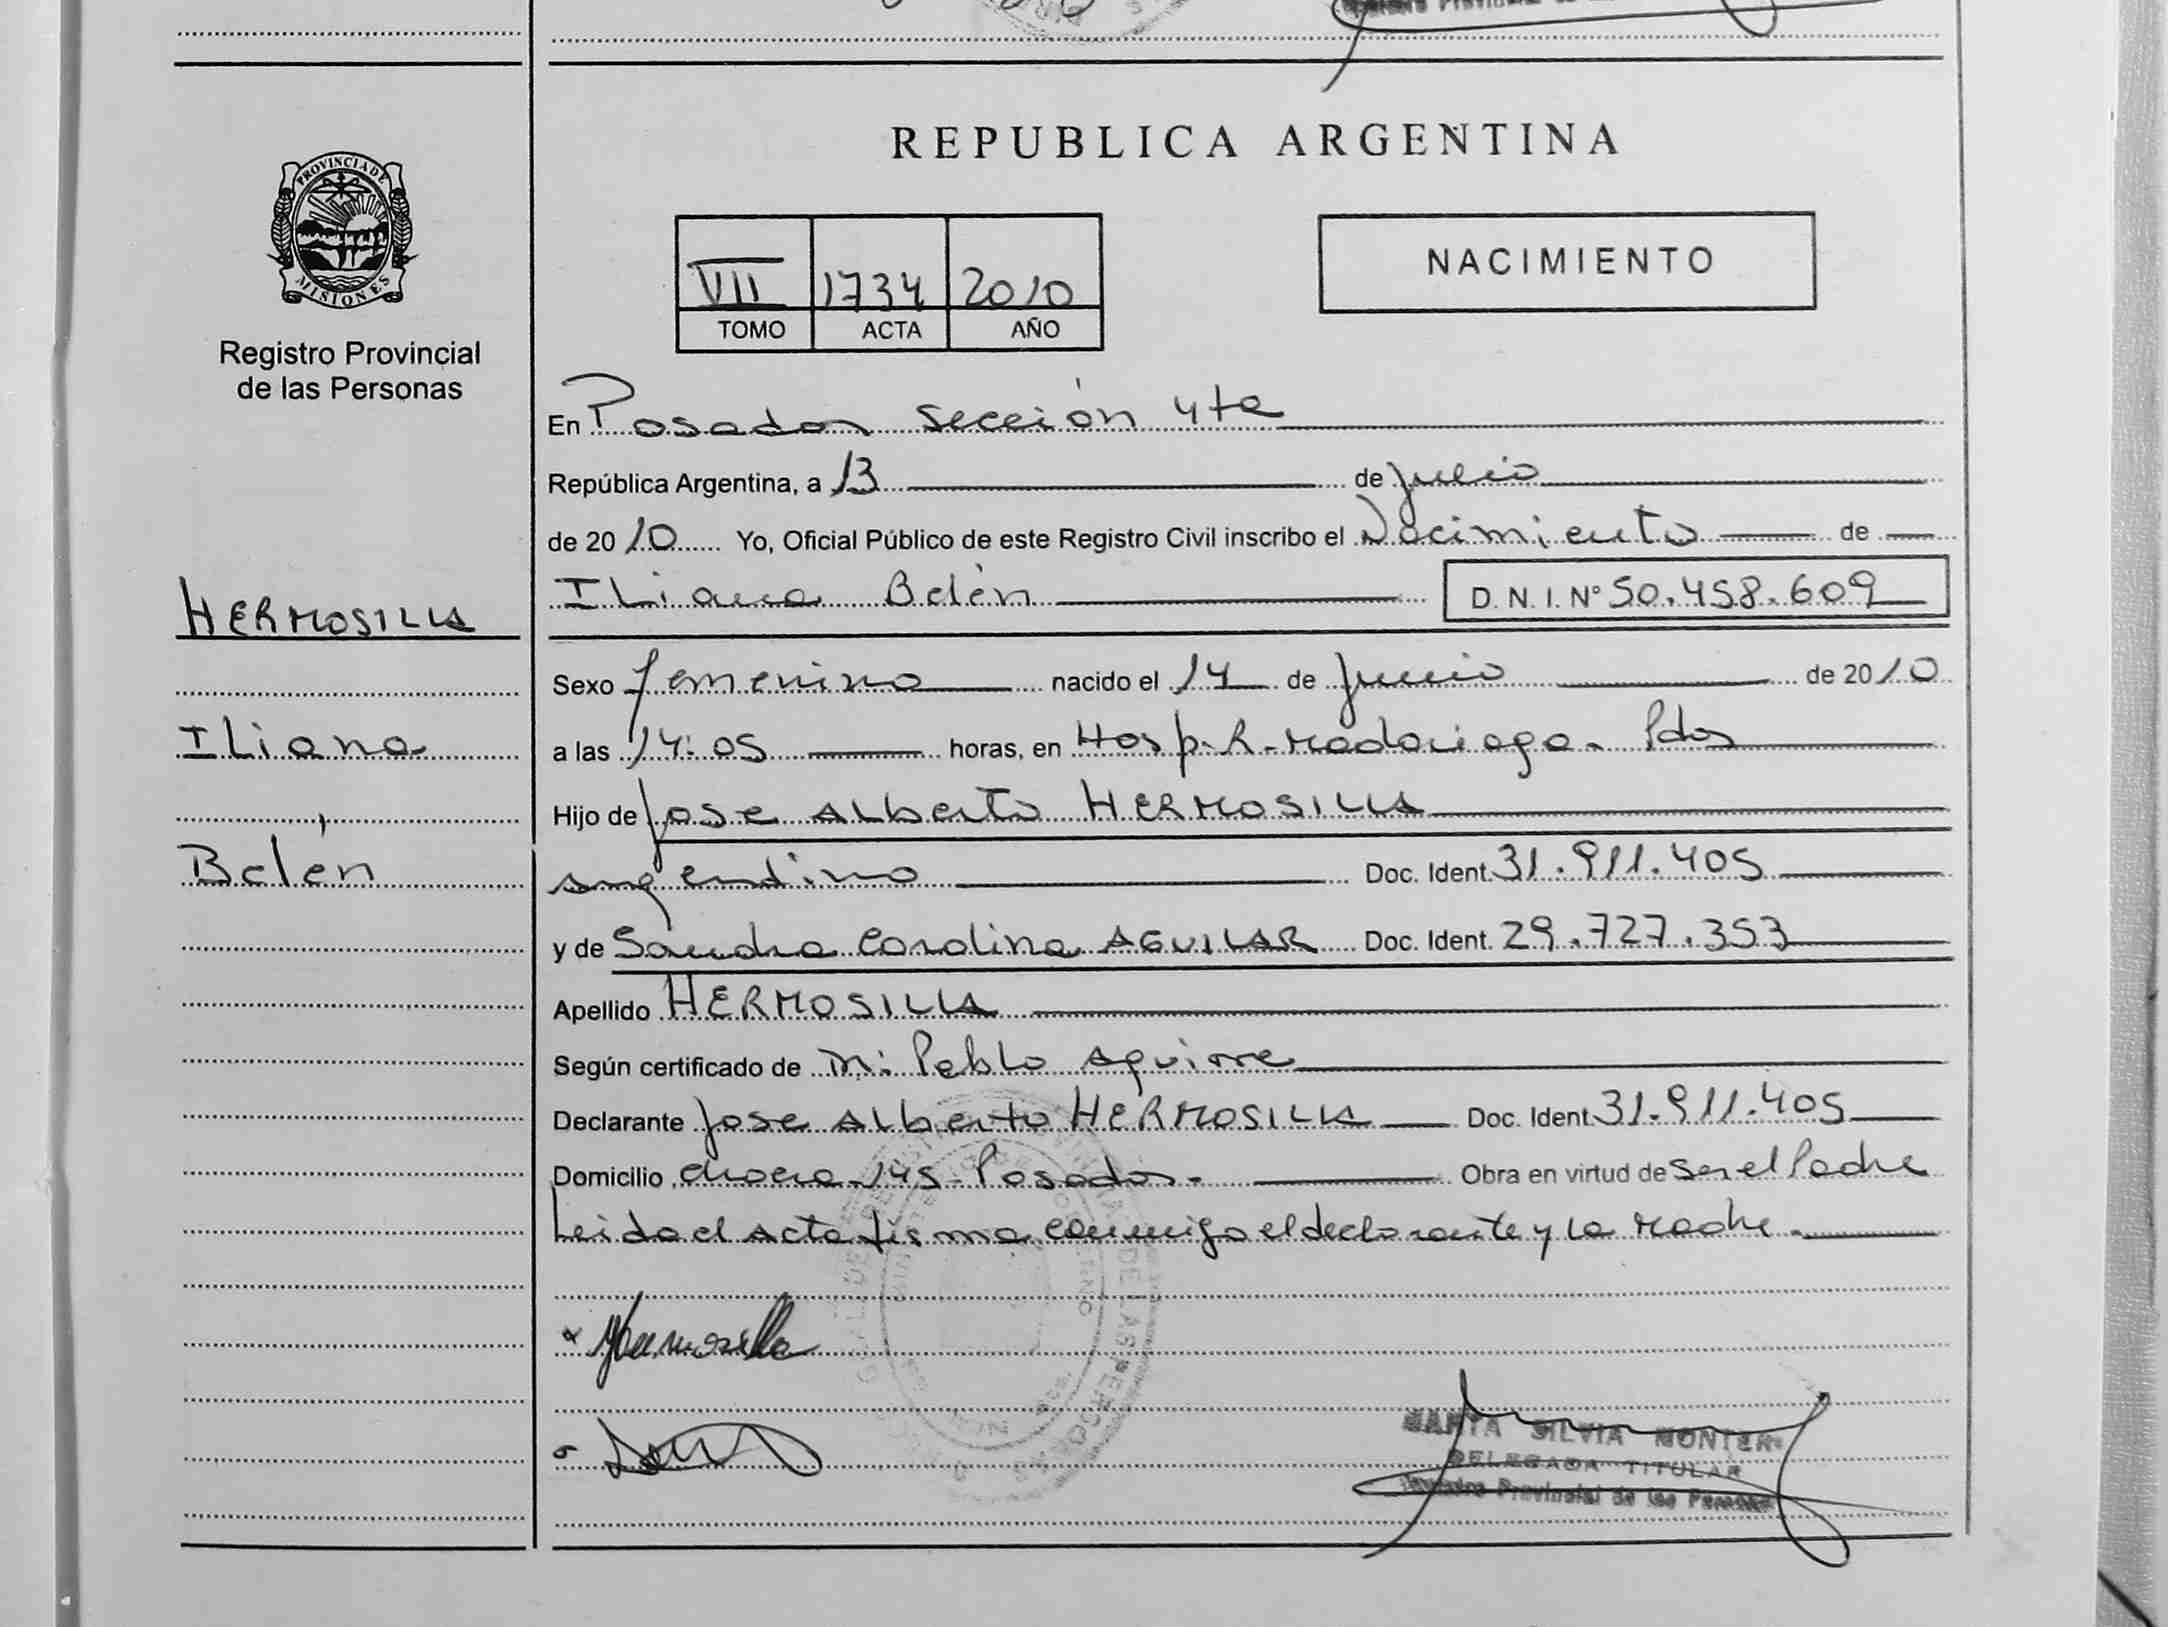 PROVINCIA DE
MISIONES
Registro Provincial
de las Personas
HERMOSILLA
Iliana
Belén
REPUBLICA ARGENTINA
VII 1734 2010
TOMO ACTA AÑO
NACIMIENTO
En Posadas sección 4ta
República Argentina, a 13 de julio
de 2010 Yo, Oficial Público de este Registro Civil inscribo el Nacimiento de
Iliana Belén D.N.I. Nº 50.458.609
Sexo femenino nacido el 14 de junio de 2010
a las 14:05 horas, en Hosp. R. Madariaga. Pdas
Hijo de Jose Alberto HERMOSILLA
argentino Doc. Ident. 31.911.405
y de Sandra Carolina AGUILAR Doc. Ident. 29.727.353
Apellido HERMOSILLA
Según certificado de Pablo Aguirre
Declarante Jose Alberto HERMOSILLA Doc. Ident 31.911.405
Domicilio 145 - Posadas. Obra en virtud de ser el Padre
Leida el Acta firma conmigo el declarante y la Madre.
Hermosilla
MARTA SILVIA MONIER
DELEGADA TITULAR
Registro Provincial de las Personas